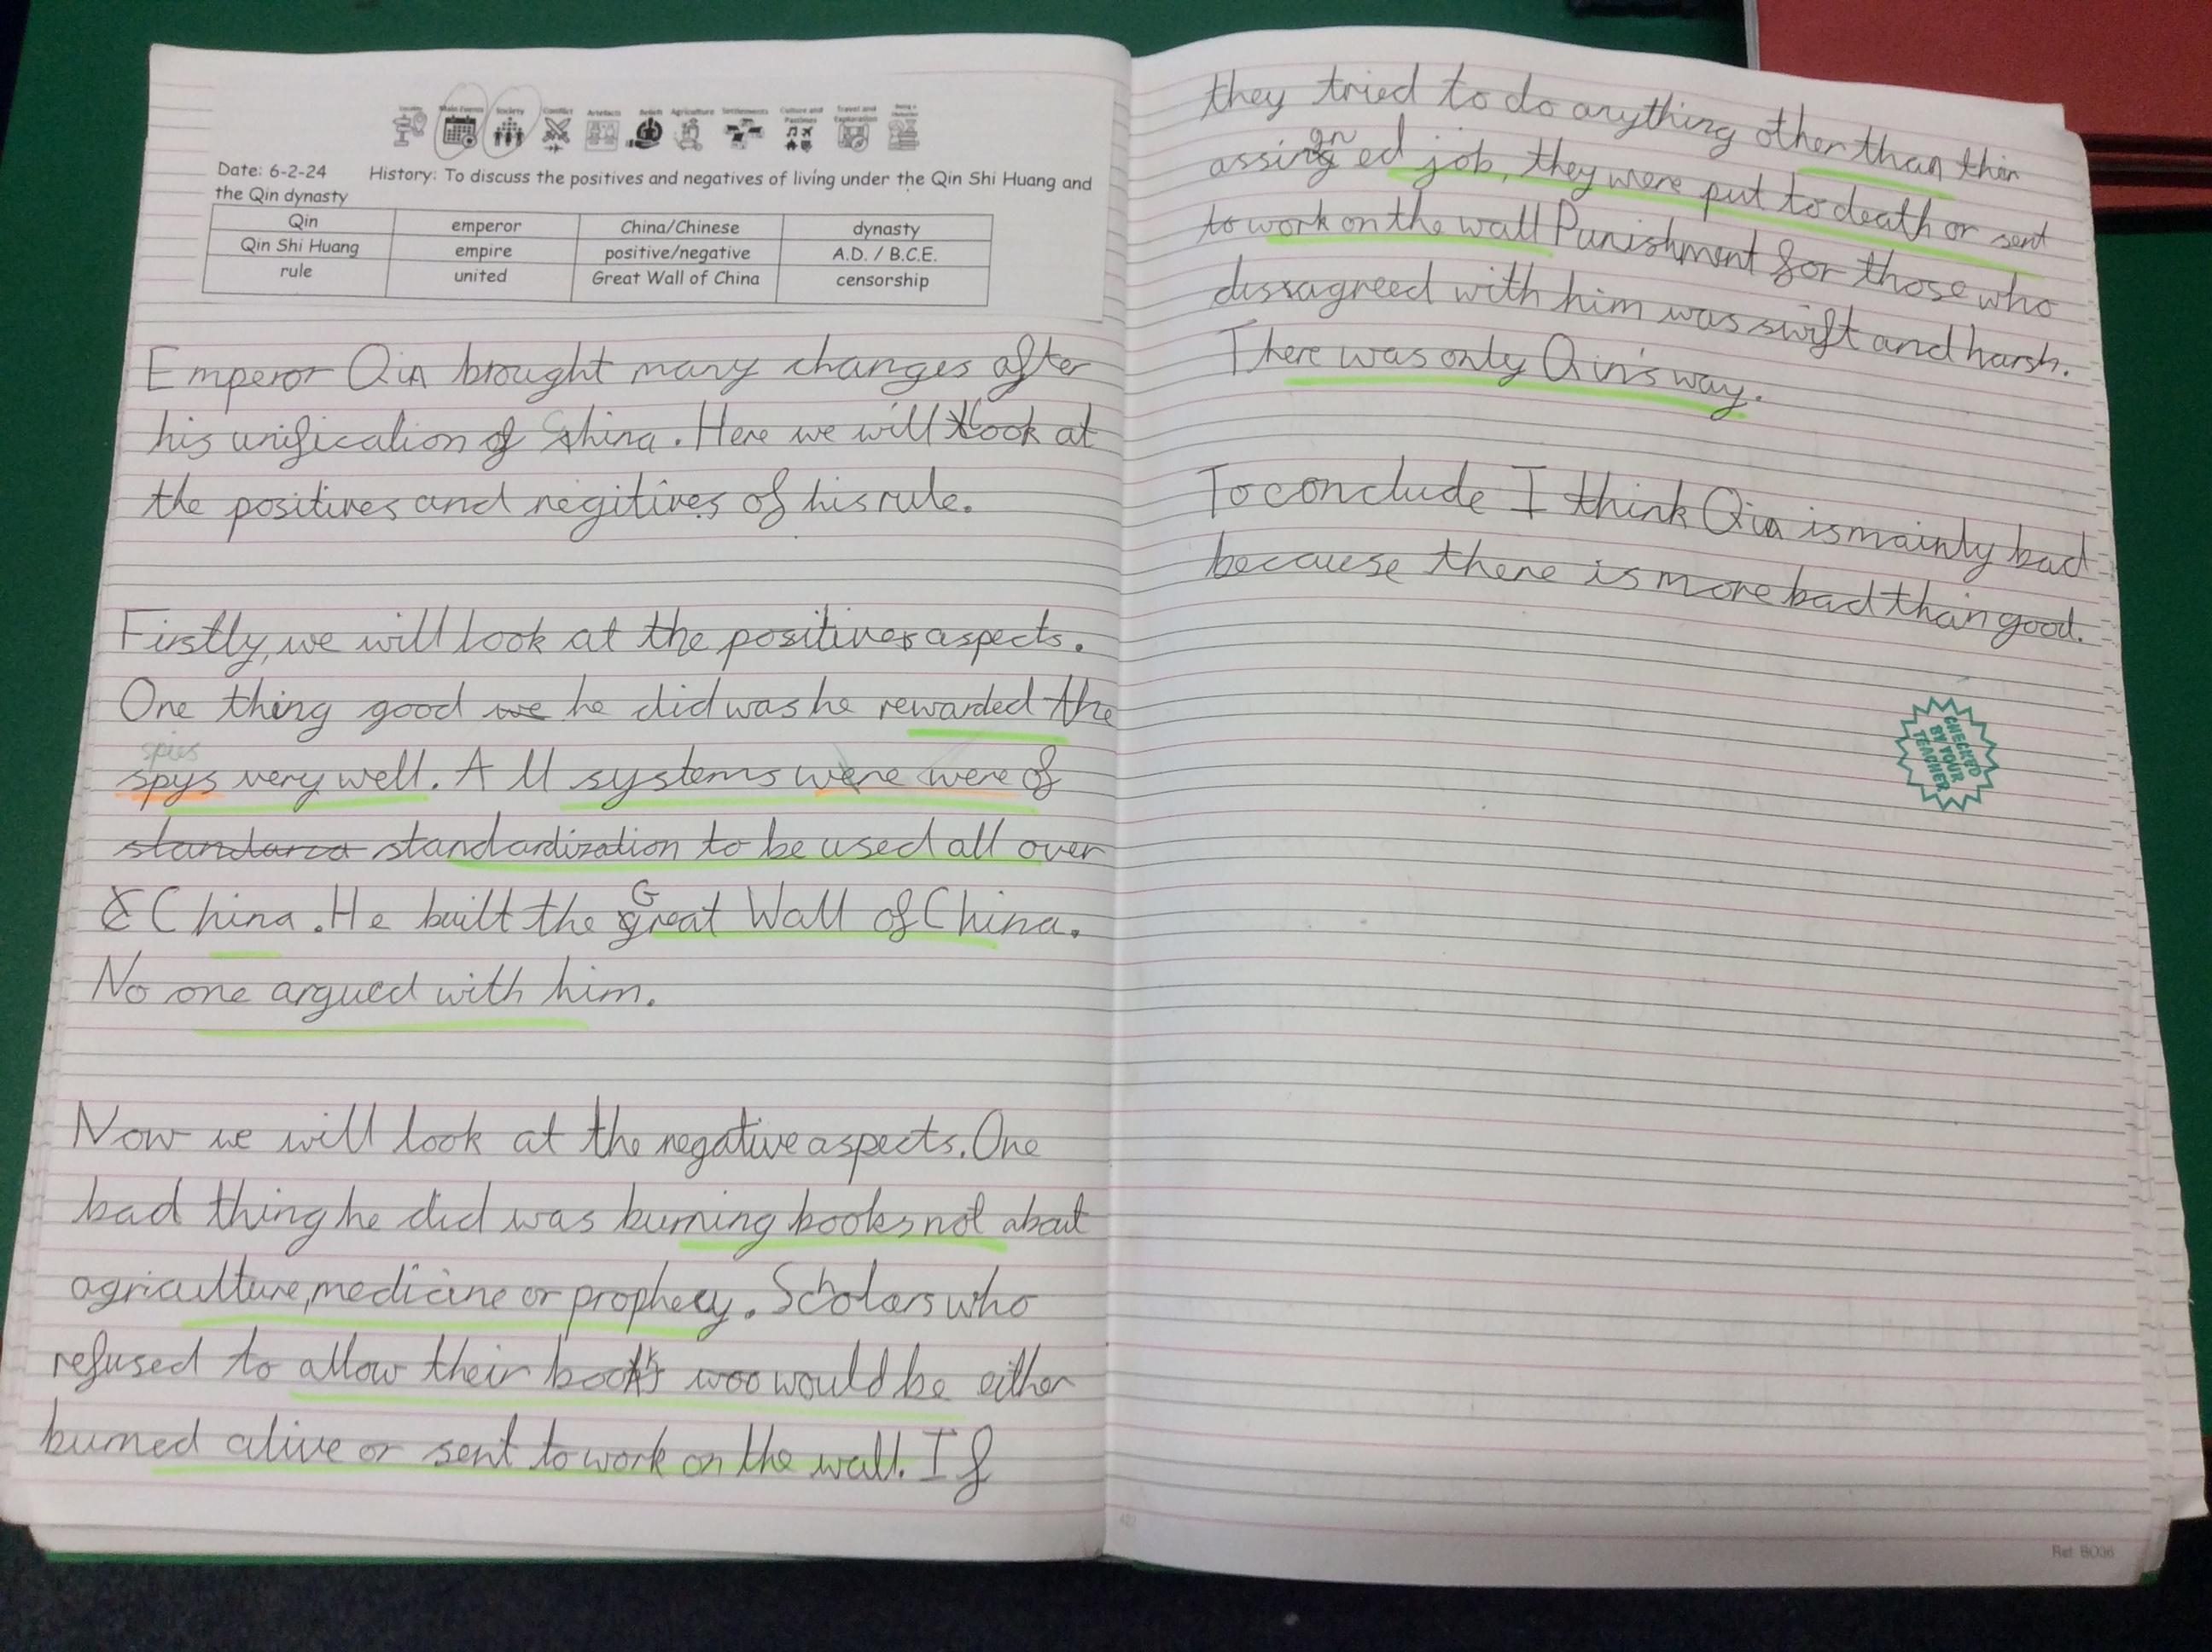 Main Events Society Conflict Artefacts Beliefs Agriculture Settlements Culture and Pastimes Travel and Exploration
Date: 6-2-24 History: To discuss the positives and negatives of living under the Qin Shi Huang and
the Qin dynasty
Qin emperor China/Chinese dynasty
Qin Shi Huang empire positive/negative A.D. / B.C.E.
rule united Great Wall of China censorship
Emperor Qin brought many changes after
his unification of China. Here we will look at
the positives and negitives of his rule.
Firstly, we will look at the positives aspects.
One thing good we he did was he rewarded the
spies
spys very well. All systems were were of
standarca standardization to be used all over
C China. He built the Great Wall of China.
No one argued with him.
Now we will look at the negative aspects. One
bad thing he did was burning books not about
agriculture, medicine or prophecy. Scholars who
refused to allow their books woo would be either
burned alive or sent to work on the wall. If
they tried to do anything other than thier
gn
assinged job, they were put to death or sent
to work on the wall Punishment for those who
dissagreed with him was swift and harsh.
There was only Qin's way.
To conclude I think Qin is mainly bad
because there is more bad than good.
CHECKED
BY YOUR
TEACHER
Ref: BO36